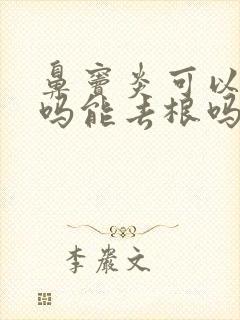 鼻窦炎可以
吗能去根吗
李岩文